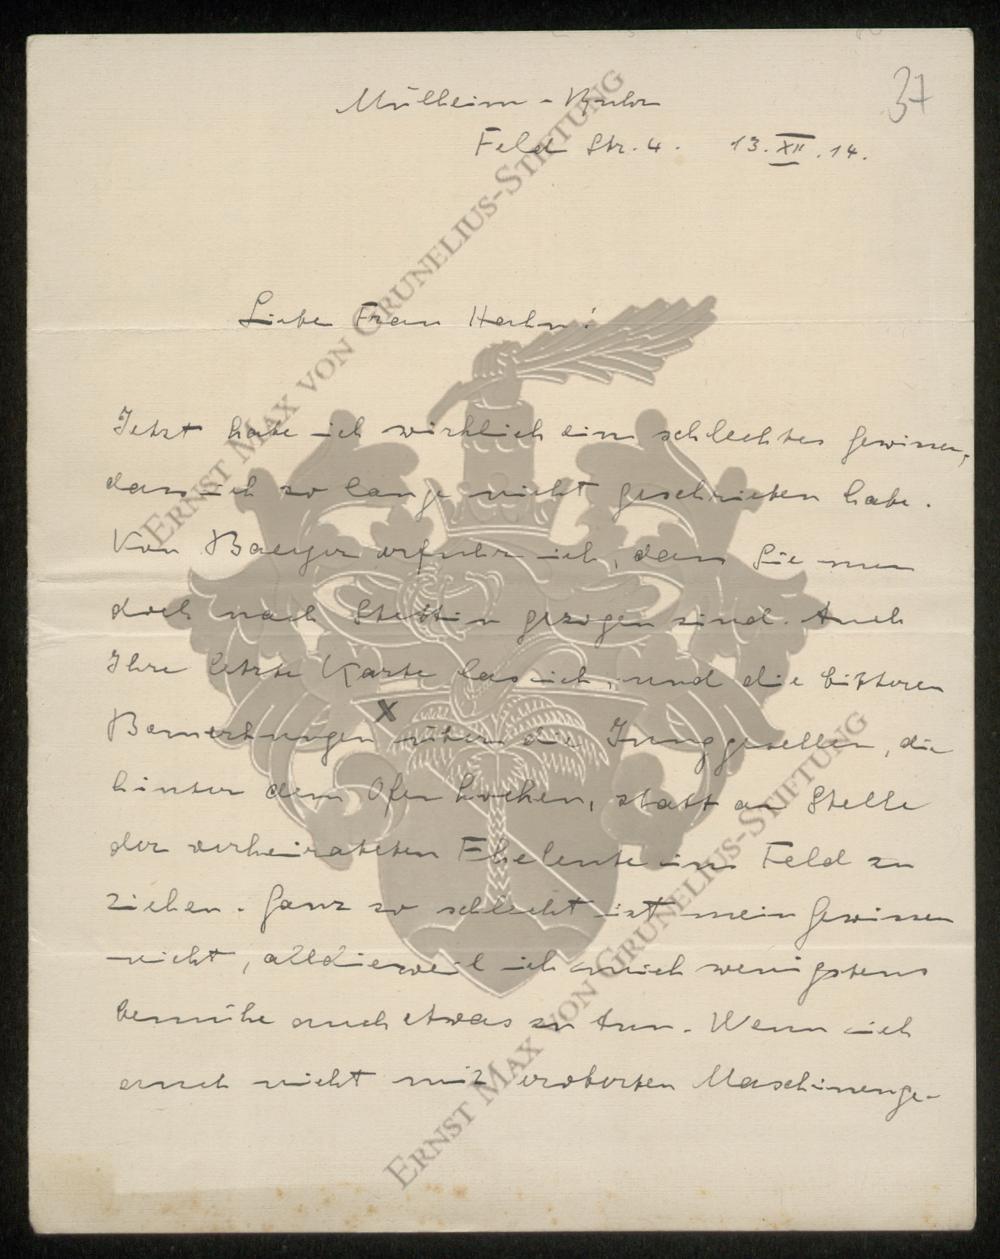 37
Mülheim - Ruhr
Feld Str. 4. 13. XII. 14.
Liebe Frau Hahn!
Jetzt habe ich wirklich ein schlechtes Gewissen,
dass ich so lange nicht geschrieben habe.
Von Baeyer erfuhr ich, dass Sie nun
doch nach Stettin gezogen sind. Auch
Ihre letzte Karte las ich, und die bitteren
Bemerkungen über die Junggesellen, die
x
hinter dem Ofen hocken, statt an Stelle
der verheirateten Eheleute ins Feld zu
ziehen. Ganz so schlecht ist mein Gewissen
nicht, alldieweil ich mich wenigstens
bemühe auch etwas zu tun. Wenn ich
auch nicht mit eroberten Maschinenge-
ERNST MAX VON GRUNELIUS-STIFTUNG
ERNST MAX VON GRUNELIUS-STIFTUNG